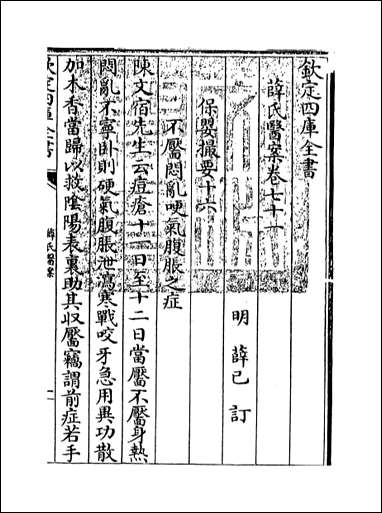 欽定四庫全書
薛氏醫案卷七十一
明 薛己 訂
保嬰撮要十六
不靨悶亂哽氣腹脹之症
陳文宿先生云痘瘡十一日至十二日當靨不靨身熱
悶亂不寧卧則硬氣腹脹泄瀉寒戰咬牙急用異功散
加木香當歸以救陰陽表裏助其收靨竊謂前症若手
欽定四庫全書
薛氏醫案
一